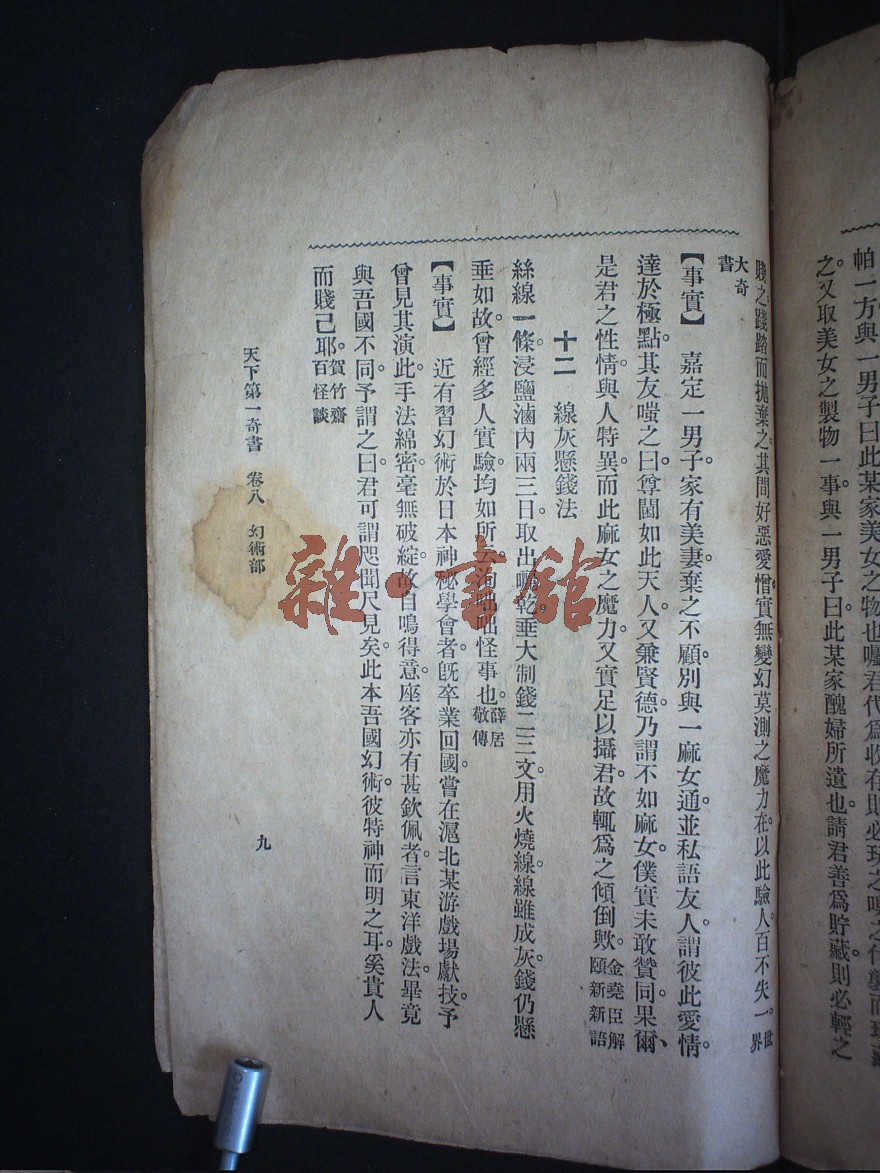 帕一方與一男子曰此某家美女之物也囑君代爲收存則必
之。又取美女之製物一事與一男子曰此某家醜婦所遺也。請君善爲貯藏。則必輕之
賤之踐踏而抛棄之。其間好惡愛憎實無變幻莫測之魔力在。以此驗人百不失一。世界
大奇書
【事實】 嘉定一男子。家有美妻棄之不顧。別與一麻女通。並私語友人。謂彼此愛情。
達於極點。其友嗤之曰。尊閫如此天人。又兼賢德。乃謂不如麻女。僕實未敢贊同。果爾、
是君之性情。與人特異。而此麻女之魔力。又實足以攝君。故輒爲之傾倒歟。金堯臣解頤新新語
十二 線灰懸錢法
絲線一條。浸鹽滷內兩三日。取出曬乾。垂大制錢二三文。用火燒線。線雖成灰。錢仍懸
垂如故。曾經多人實驗。均如所云。洵咄咄怪事也。薛居敬傳
【事實】 近有習幻術於日本神秘學會者。旣卒業回國。嘗在滬北某游戲場獻技。予
曾見其演此。手法綿密。毫無破綻。故自鳴得意。座客亦有甚欽佩者。言東洋戲法。畢竟
與吾國不同。予謂之曰。君可謂咫聞尺見矣。此本吾國幻術。彼特神而明之耳。奚貴人
而賤己耶。賀竹齋百怪談
天下第一奇書 卷八 幻術部 九
雜·書館